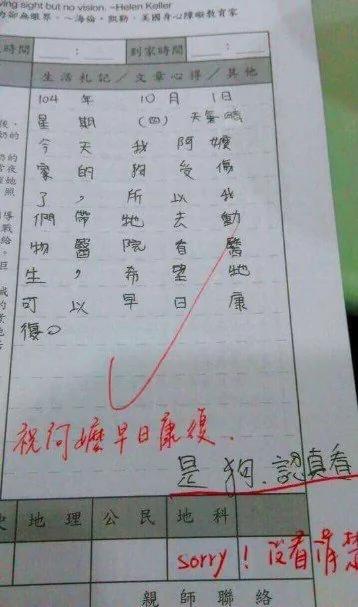 ving sight but no vision. ~Helen Keller
力卻無眼界。~海倫‧凱勒，美國身心障礙教育家
時間 : 到家時間 :
生活札記／文章心得／其他
104 年 10 月 1日
星期 (四) 天氣晴
今天我阿嬤
家的狗受傷
了，所以我
們帶牠去動
物醫院看醫
生，希望牠
可以早日康
復。
祝阿嬤早日康復.
是狗.認真看
史 地理 公民 地科
sorry! 沒看清楚
親師聯絡